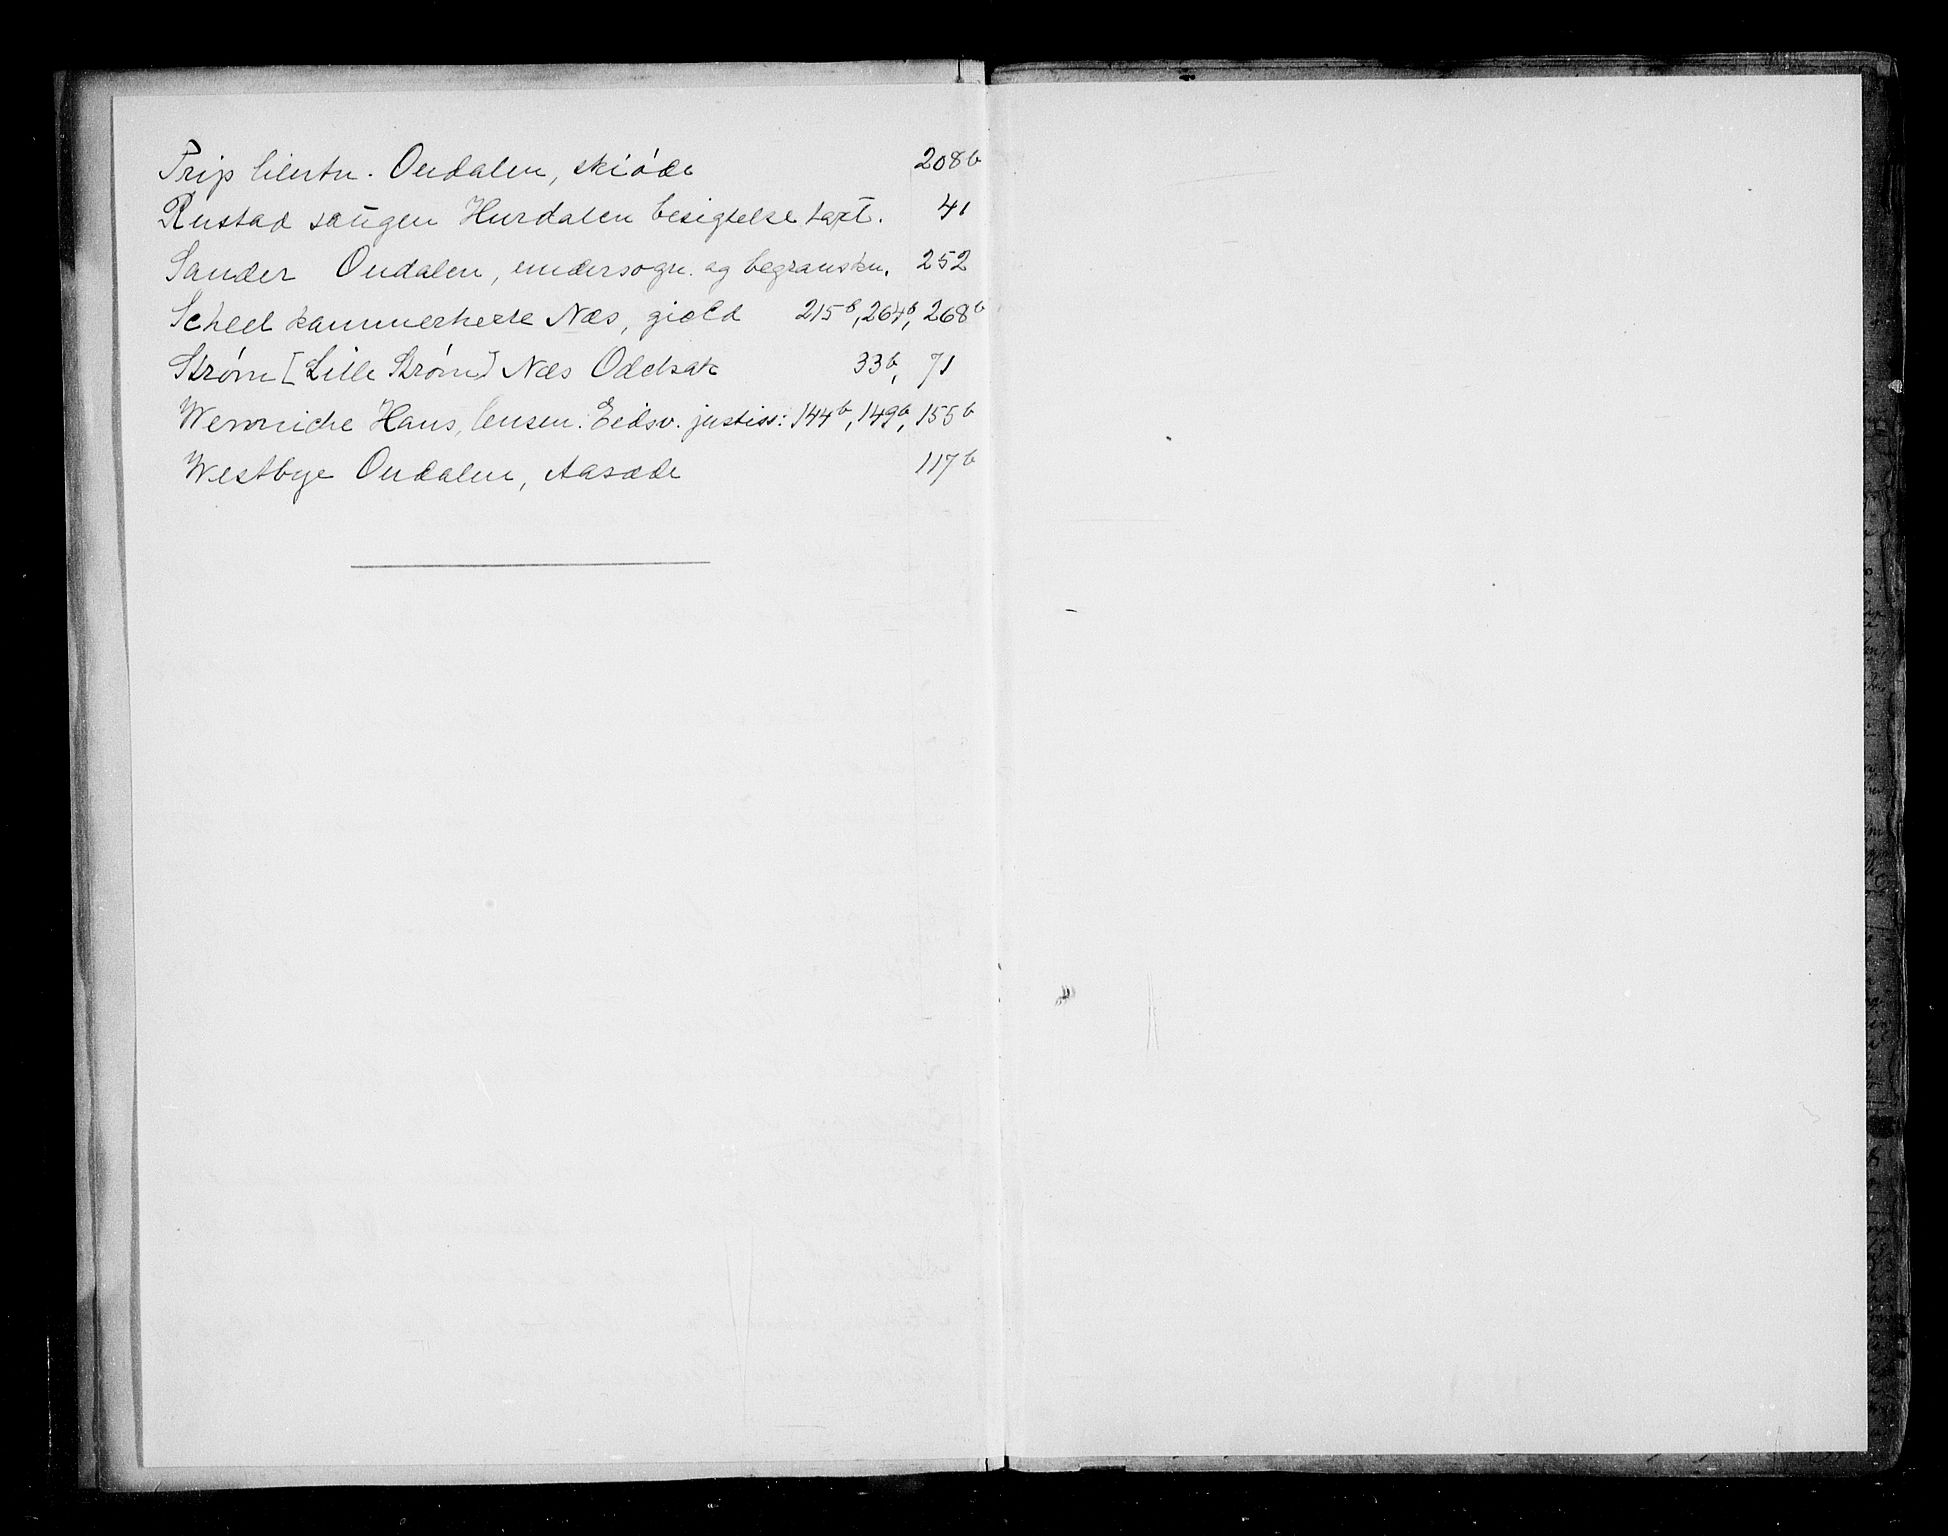 Prip lieutn. Oudalen, skiøde 208b
Rustad saugen Hurdalen besigtelse taxt. 41
Sander Oudalen, undersogn. og begranskn. 252
Scheel kammerherre Næs, giæld 215b, 264b, 268b
Strøm [Lille Strøm] Næs Odelsak 33b, 71
Wernniche Hans, Censen. Eidsv. justiss: 144b, 149b, 155b
Westbye Oudalen, Aasæde 117b